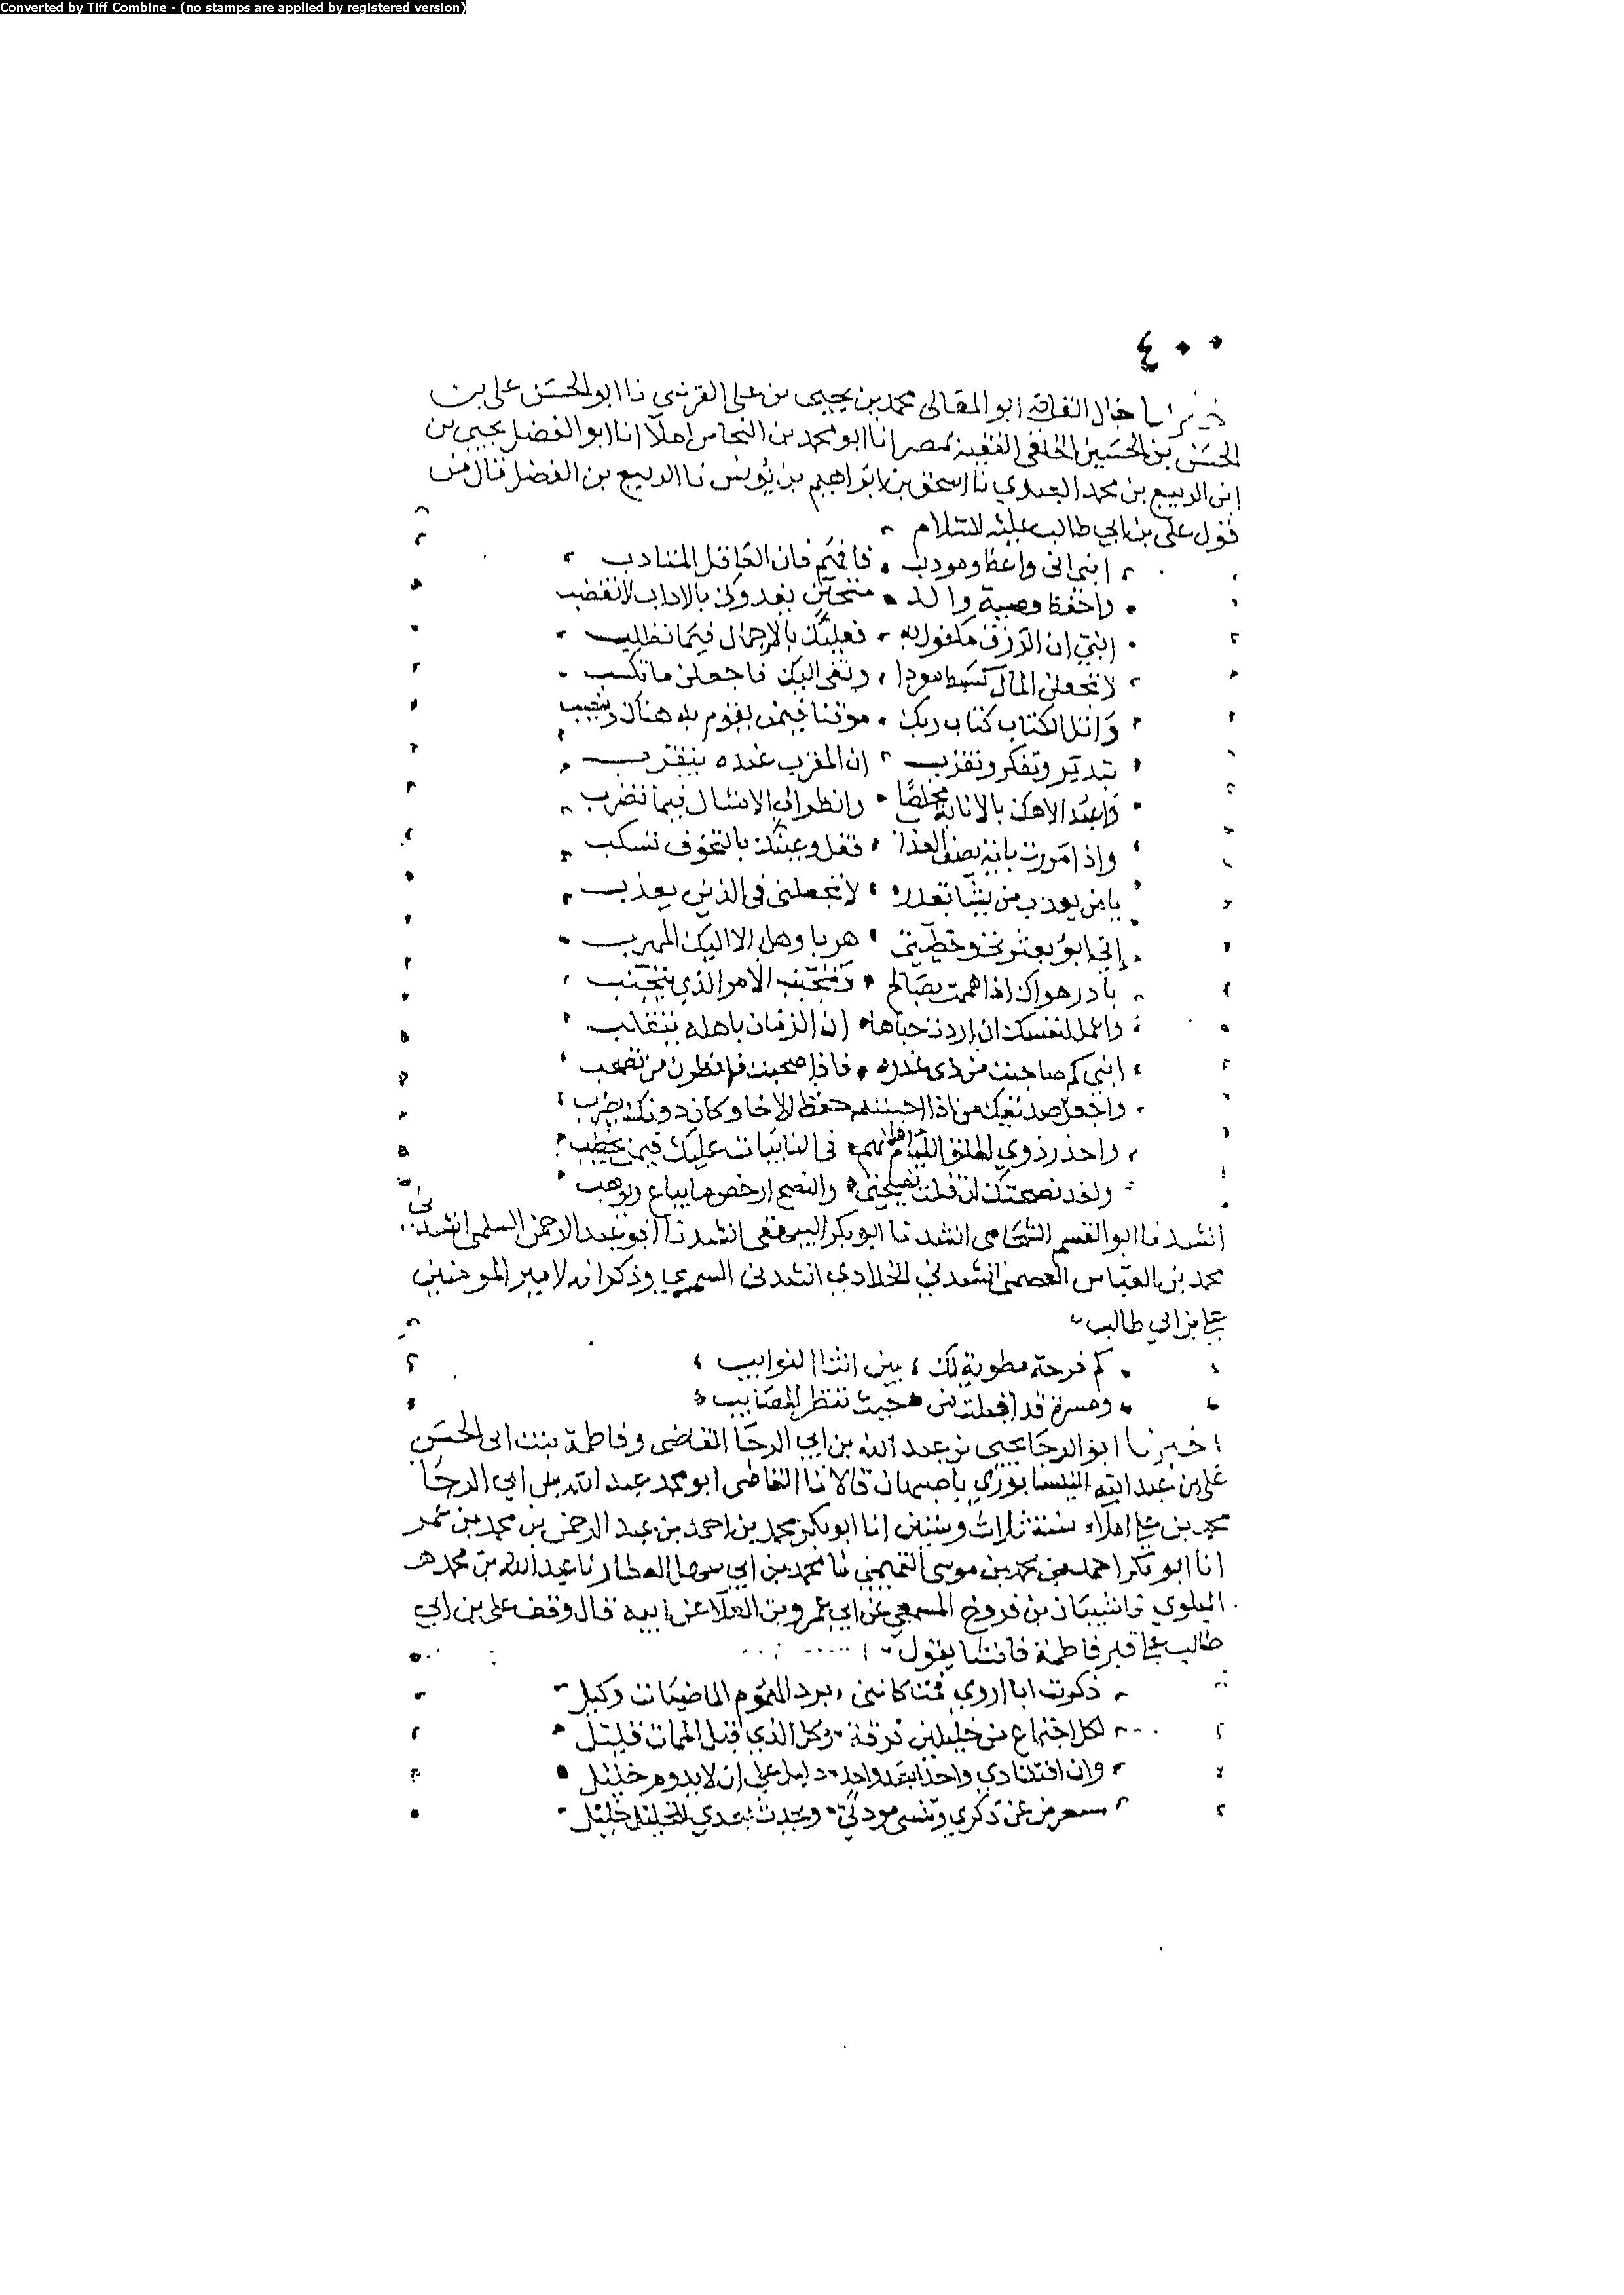 Converted by Tiff Combine - (no stamps are applied by registered version)
٤٠٠
خال القاضي ابو المعالي محمد بن يحيى بن علي القرشي نا ابو الحسن علي بن
الحسن بن الحسين الخلعي الفقيه بمصر انا ابو محمد بن النحاس املآ انا ابو الفضل يحيى بن
ابن الربيع بن محمد العبدي نا اسحق بن ابراهيم بن يونس نا الربيع بن الفضل قال من
قول علي بن ابي طالب عليه السلام
ابني اني واعظ ومودب فافهم فان العاقل المتادب
واحفظ وصية والد متحنن يغدوك بالاداب لا تغضب
ابني ان الرزق مكفول به فعليك بالاجمال فيما تطلب
لا تجعلن المال كسبك مفردا وتقى الهك فاجعلن ما تكسب
واتل الكتاب كتاب ربك موقنا فيمن يقوم به هناك وينصب
بتدبر وتفكر وتقرب ان المقرب عنده يتقرب
واعبد الاهك بالانابة مخلصا وانظر الى الامثال فيما تضرب
واذا مررت باية يصف العذا فقف وعينك بالتخوف تسكب
يا من يعذب من يشا بعدله لا تجعلني في الذين يعذب
اني ابوء بعثرتي وخطيتي هربا وهل الا اليك المهرب
بادر هواك اذا هممت بصالح وتجنب الامر الذي يتجنب
واعمل لنفسك ان اردت حباها ان الزمان باهله يتقلب
ابني كم صاحبت من ذي غدره فاذا صحبت فانظرن من تصحب
واجعل صديقك من اذا احببته حفظ الاخا وكان دونك يضرب
واحذر ذوي الملق اللئام فانهم في النايبات عليك فيمن يحطب
ولقد نصحتك ان قبلت نصيحتي والنصح ارخص ما يباع ويوهب
انشدنا ابو القسم الشحامي انشدنا ابو بكر البيهقي انشدنا ابو عبد الرحمن السلمي انشدني
محمد بن العباس العصمي انشدني الخلادي انشدني السمري وذكر انه لامير المومنين
علي بن ابي طالب
كم فرحة مطوية لك بين اثنا النوايب
ومسرة قد اقبلت من حيث تنتظر المصايب
اخبرنا ابو الرجا يحيى بن عبد الله بن ابي الرجا القاضي وفاطمة بنت ابي الحسن
علي بن عبد الله النيسابوري باصبهان قالا نا القاضي ابو محمد عبد الله بن ابي الرجا
محمد بن علي املاء سنة ثلاث وستين انا ابو بكر محمد بن احمد بن عبد الرحمن بن محمد بن عمر
انا ابو بكر احمد بن محمد بن موسى التميمي نا محمد بن ابي سهل العطار نا عبد الله بن محمد هو
البلوي نا شيبان بن فروخ المسمعي عن ابي عمرو بن العلا عن ابيه قال وقف علي بن ابي
طالب علي قبر فاطمة فانشا يقول
ذكرت ابا اروي فبت كانني برد الهموم الماضيات وكيل
لكل اجتماع من خليلين فرقة وكل الذي قبل الممات قليل
وان افتقادي واحدا بعد واحد دليل على ان لا يدوم خليل
سيعرض عن ذكري وتنسى مودتي ويحدث بعدي للخليل خليل